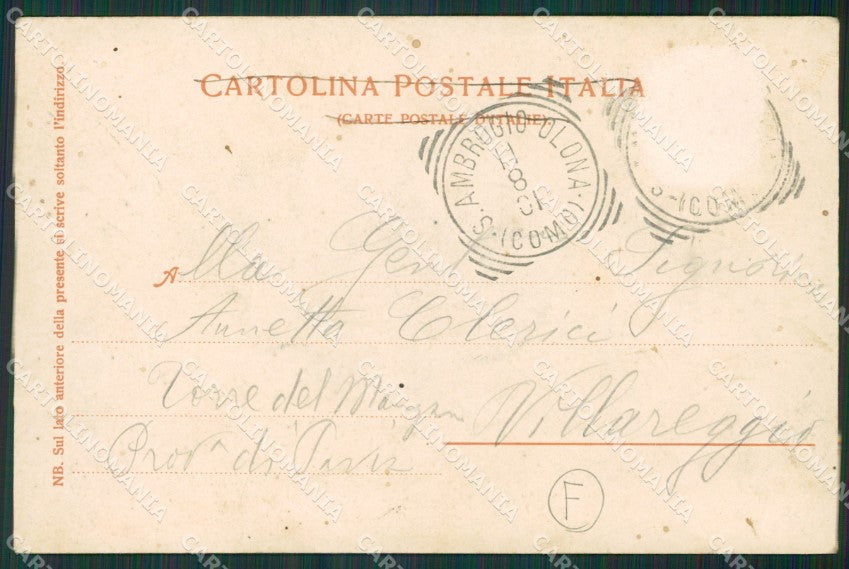 CARTOLINA POSTALE ITALIA
(CARTE POSTALE D'ITALIE).
S. AMBROGIO OLONA · (COMO)
8 01
S · (COM
NB. Sul lato anteriore della presente si scrive soltanto l'indirizzo.
Alla Gent Signorina
Annetta Clerici
Torre del Mangano Villareggio
Prov.a di Pavia
F
CARTOLINOMANIA